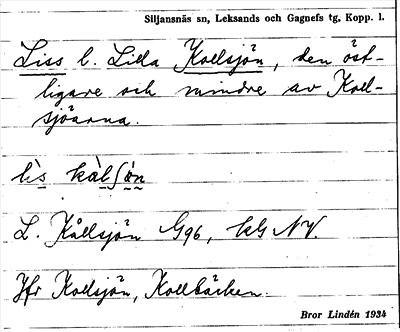 Siljansnäs sn, Leksands och Gagnefs tg, Kopp. l.
Liss l. Lilla Kollsjön, den öst-
ligare och mindre av Koll-
sjöarna.
L. Kållsjön G96, kG NV.
Jfr Kollsjön, Kollbäcken.
Bror Lindén 1934